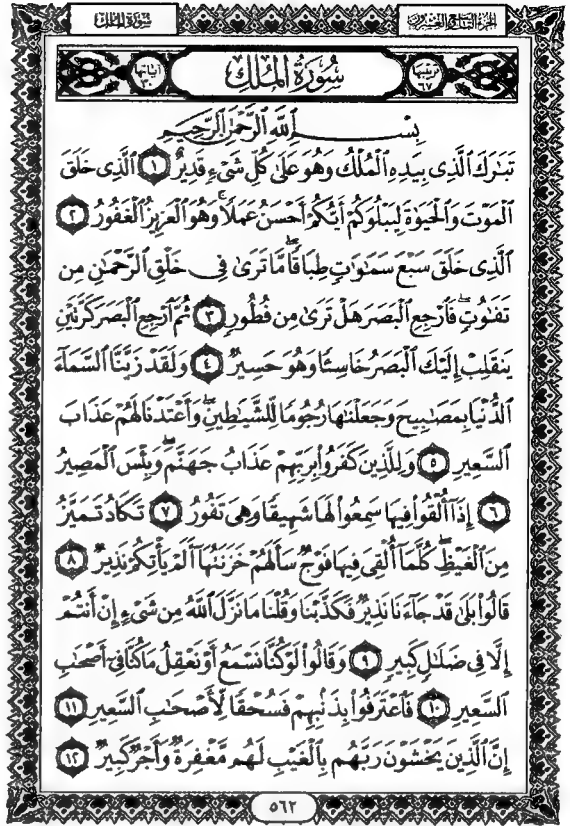 سُورَةُ المُلْكِ
الجُزءُ التَّاسِعُ والعِشْرُون
آيَاتُهَا ٣٠
سُورَةُ المُلْكِ
تَرتِيبُهَا ٦٧
بِسْمِ ٱللَّهِ ٱلرَّحْمَٰنِ ٱلرَّحِيمِ
تَبَٰرَكَ ٱلَّذِى بِيَدِهِ ٱلْمُلْكُ وَهُوَ عَلَىٰ كُلِّ شَىْءٍ قَدِيرٌ ١ ٱلَّذِى خَلَقَ
ٱلْمَوْتَ وَٱلْحَيَوٰةَ لِيَبْلُوَكُمْ أَيُّكُمْ أَحْسَنُ عَمَلًا ۚ وَهُوَ ٱلْعَزِيزُ ٱلْغَفُورُ ٢
ٱلَّذِى خَلَقَ سَبْعَ سَمَٰوَٰتٍ طِبَاقًا ۖ مَّا تَرَىٰ فِى خَلْقِ ٱلرَّحْمَٰنِ مِن
تَفَٰوُتٍ ۖ فَٱرْجِعِ ٱلْبَصَرَ هَلْ تَرَىٰ مِن فُطُورٍ ٣ ثُمَّ ٱرْجِعِ ٱلْبَصَرَ كَرَّتَيْنِ
يَنقَلِبْ إِلَيْكَ ٱلْبَصَرُ خَاسِئًا وَهُوَ حَسِيرٌ ٤ وَلَقَدْ زَيَّنَّا ٱلسَّمَآءَ
ٱلدُّنْيَا بِمَصَٰبِيحَ وَجَعَلْنَٰهَا رُجُومًا لِّلشَّيَٰطِينِ ۖ وَأَعْتَدْنَا لَهُمْ عَذَابَ
ٱلسَّعِيرِ ٥ وَلِلَّذِينَ كَفَرُوا۟ بِرَبِّهِمْ عَذَابُ جَهَنَّمَ ۖ وَبِئْسَ ٱلْمَصِيرُ
٦ إِذَآ أُلْقُوا۟ فِيهَا سَمِعُوا۟ لَهَا شَهِيقًا وَهِىَ تَفُورُ ٧ تَكَادُ تَمَيَّزُ
مِنَ ٱلْغَيْظِ ۖ كُلَّمَآ أُلْقِىَ فِيهَا فَوْجٌ سَأَلَهُمْ خَزَنَتُهَآ أَلَمْ يَأْتِكُمْ نَذِيرٌ ٨
قَالُوا۟ بَلَىٰ قَدْ جَآءَنَا نَذِيرٌ فَكَذَّبْنَا وَقُلْنَا مَا نَزَّلَ ٱللَّهُ مِن شَىْءٍ إِنْ أَنتُمْ
إِلَّا فِى ضَلَٰلٍ كَبِيرٍ ٩ وَقَالُوا۟ لَوْ كُنَّا نَسْمَعُ أَوْ نَعْقِلُ مَا كُنَّا فِىٓ أَصْحَٰبِ
ٱلسَّعِيرِ ١٠ فَٱعْتَرَفُوا۟ بِذَنۢبِهِمْ فَسُحْقًا لِّأَصْحَٰبِ ٱلسَّعِيرِ ١١
إِنَّ ٱلَّذِينَ يَخْشَوْنَ رَبَّهُم بِٱلْغَيْبِ لَهُم مَّغْفِرَةٌ وَأَجْرٌ كَبِيرٌ ١٢
٥٦٢